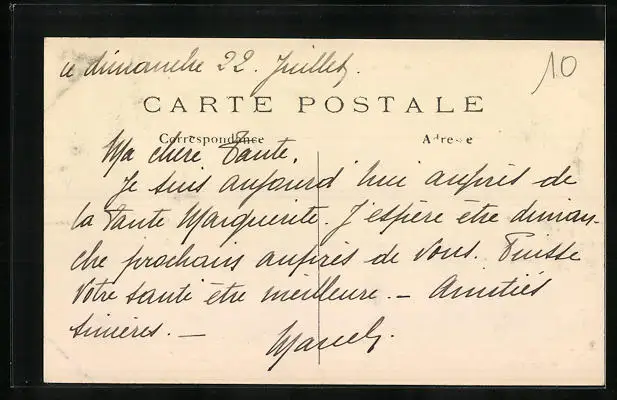 ce dimanche 22. Juillet.
10
CARTE POSTALE
Correspondance Adresse
Ma chère Tante,
Je suis aujourd'hui auprès de
la Tante Marguerite. J'espère être diman-
che prochain auprès de vous. Puisse
votre santé être meilleure. — Amitiés
sincères. —
Marcel.